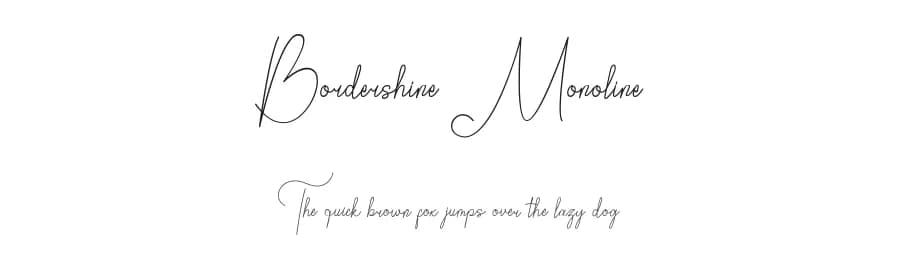 Bordershine Monoline
The quick brown fox jumps over the lazy dog